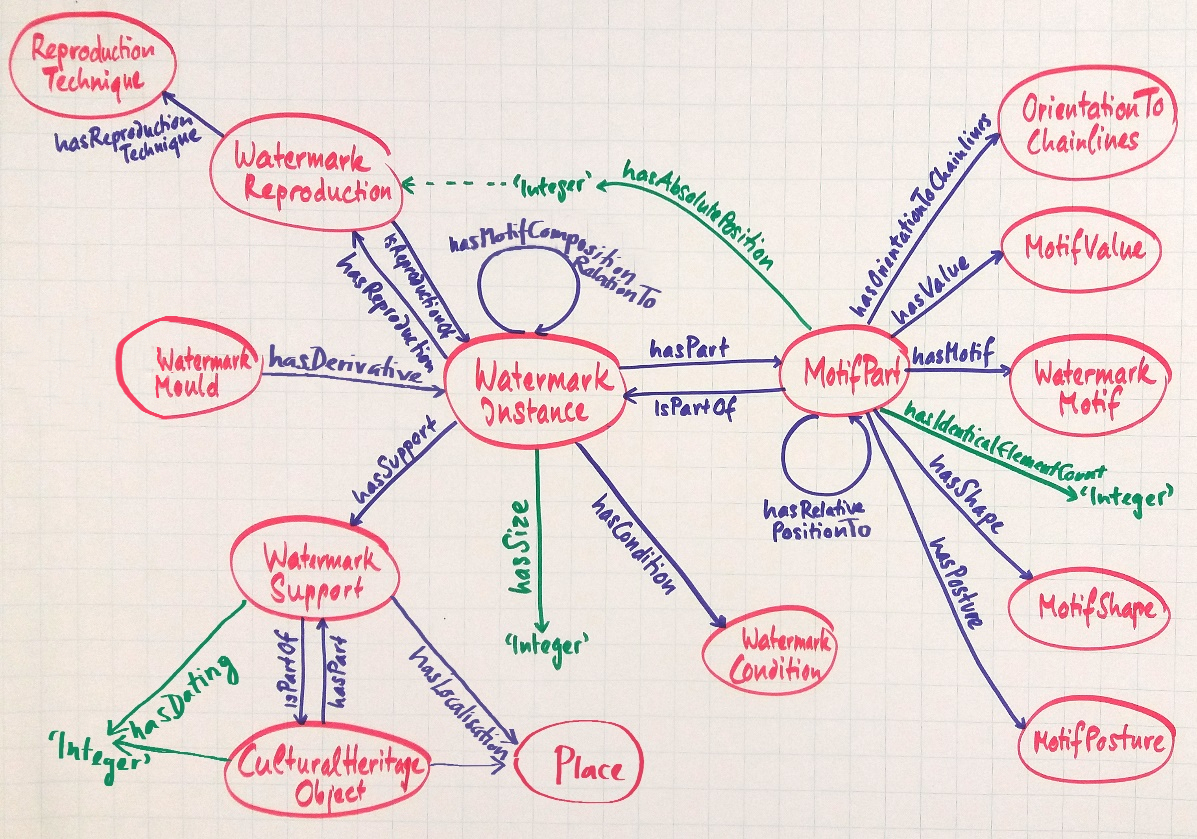 Reproduction
Technique
hasReproduction
Technique
Watermark
Reproduction
'Integer'
hasAbsolutePosition
OrientationTo
Chainlines
hasOrientationToChainlines
MotifValue
hasValue
isReproductionOf
hasReproduction
hasMotifComposition
RelationTo
Watermark
Mould
hasDerivative
Watermark
Instance
hasPart
isPartOf
MotifPart
hasMotif
Watermark
Motif
hasIdenticalElementCount
'Integer'
hasShape
hasPosture
hasRelative
PositionTo
hasSupport
hasSize
hasCondition
Watermark
Support
'Integer'
Watermark
Condition
MotifShape
MotifPosture
isPartOf
hasPart
hasLocalisation
hasDating
'Integer'
CulturalHeritage
Object
Place